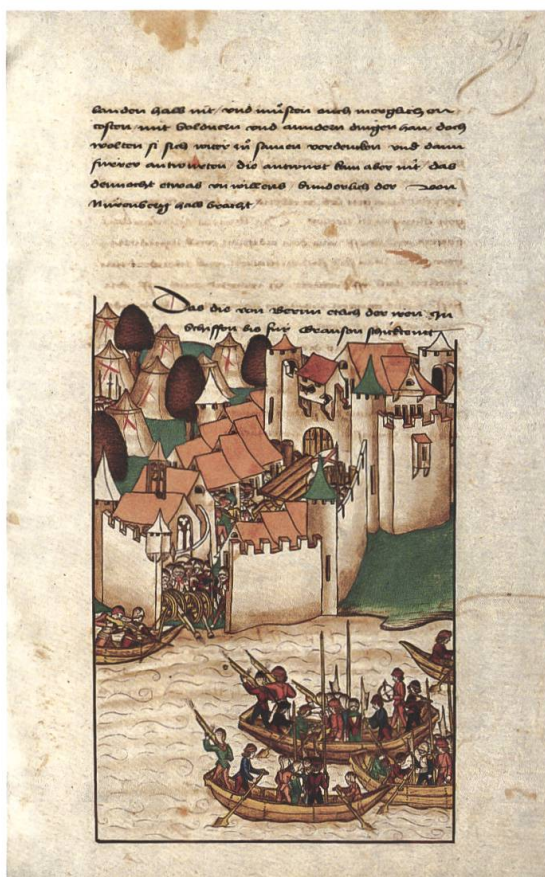 landen halb nit / vnd můsten ouch merglichen
costen mit soldnern vnd anndern dingen han / doch
wolten si sich witer in sinnen verdencken vnd dann
fürer antwurten die antwurt kam aber nit / das
dennacht etwas vnwillens sunderlich der von
Nürenberg halb bracht
Das die von Bernn etlich der iren In
Schiffen bis für Granson schicktent
319